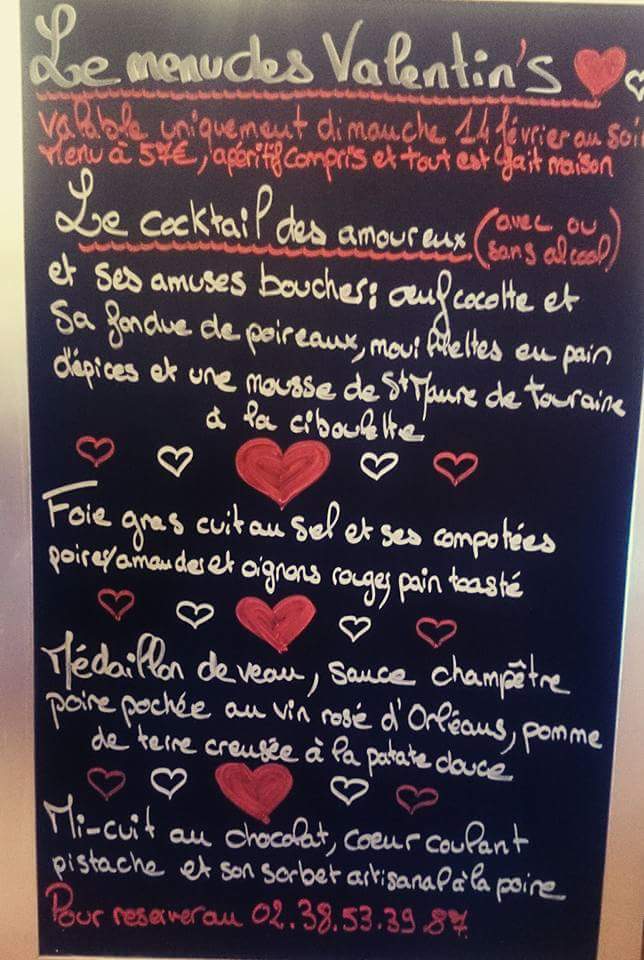 Le menu des Valentin's
Valable uniquement dimanche 14 février au soir
Menu à 57€, apéritif compris et tout est fait maison
Le cocktail des amoureux (avec ou sans alcool)
et ses amuses bouches: œuf cocotte et
sa fondue de poireaux, mouillettes en pain
d'épices et une mousse de St Maure de Touraine
à la ciboulette
Foie gras cuit au sel et ses compotées
poires/amandes et oignons rouges, pain toasté
Médaillon de veau, sauce champêtre
poire pochée au vin rosé d'Orléans, pomme
de terre creusée à la patate douce
Mi-cuit au chocolat, coeur coulant
pistache et son sorbet artisanal à la poire
Pour reserver au 02.38.53.39.87